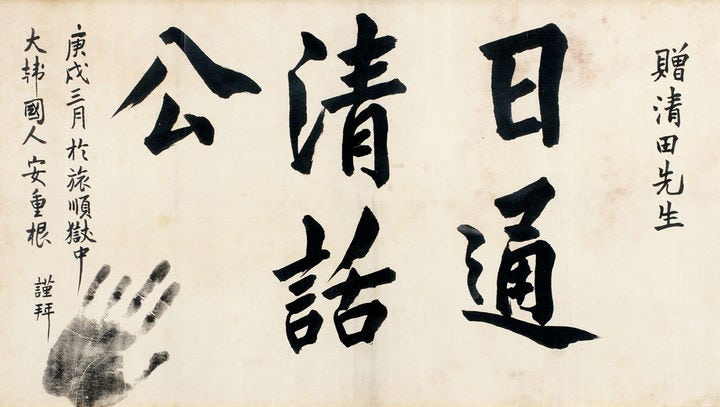 贈清田先生
日通
清話
公
庚戌三月於旅順獄中
大韩國人安重根
謹拜